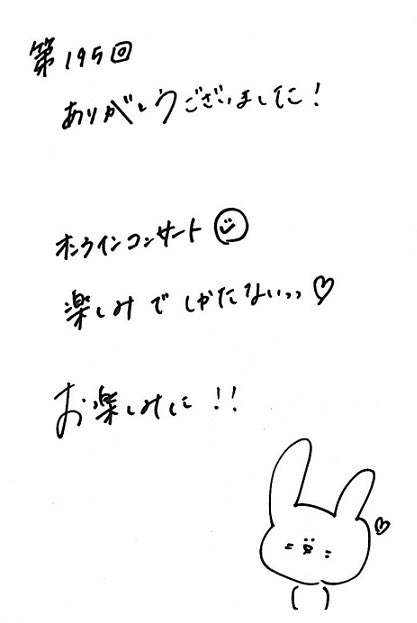 第195回
ありがとうございました!
オンラインコンサート
楽しみでしかたないっっ♡
お楽しみに!!